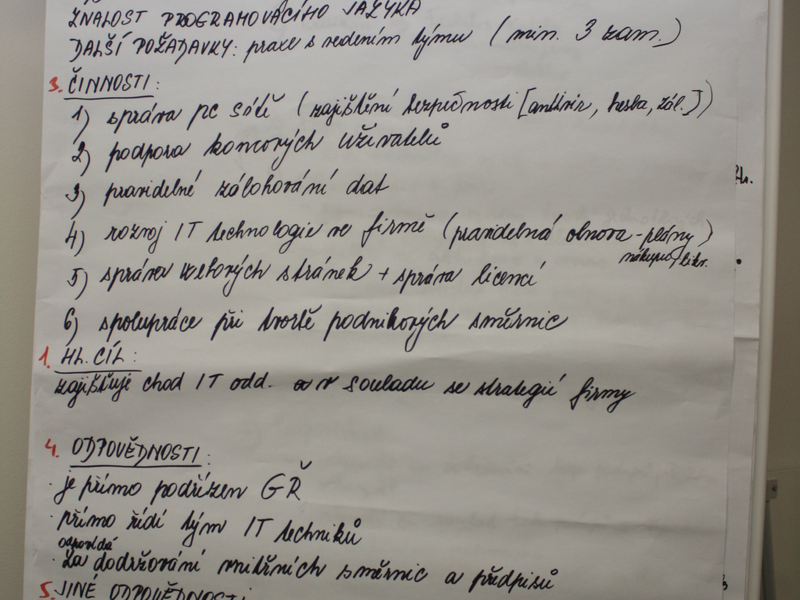 ZNALOST PROGRAMOVACÍHO JAZYKA
DALŠÍ POŽADAVKY: praxe s vedením týmu (min. 3 zam.)
3. ČINNOSTI:
1) správa PC sítě (zajištění bezpečnosti [antivir, hesla, zál.])
2) podpora koncových uživatelů
3) pravidelné zálohování dat
4) rozvoj IT technologie ve firmě (pravidelná obnova - plány)
nákupu, likv.
5) správa webových stránek + správa licencí
6) spolupráce při tvorbě podnikových směrnic
1. HL. CÍL:
zajišťuje chod IT odd. v souladu se strategií firmy
4. ODPOVĚDNOSTI:
· je přímo podřízen GŘ
· přímo řídí tým IT techniků
odpovídá
· za dodržování vnitřních směrnic a předpisů
5. JINÉ ODPOVĚDNOSTI